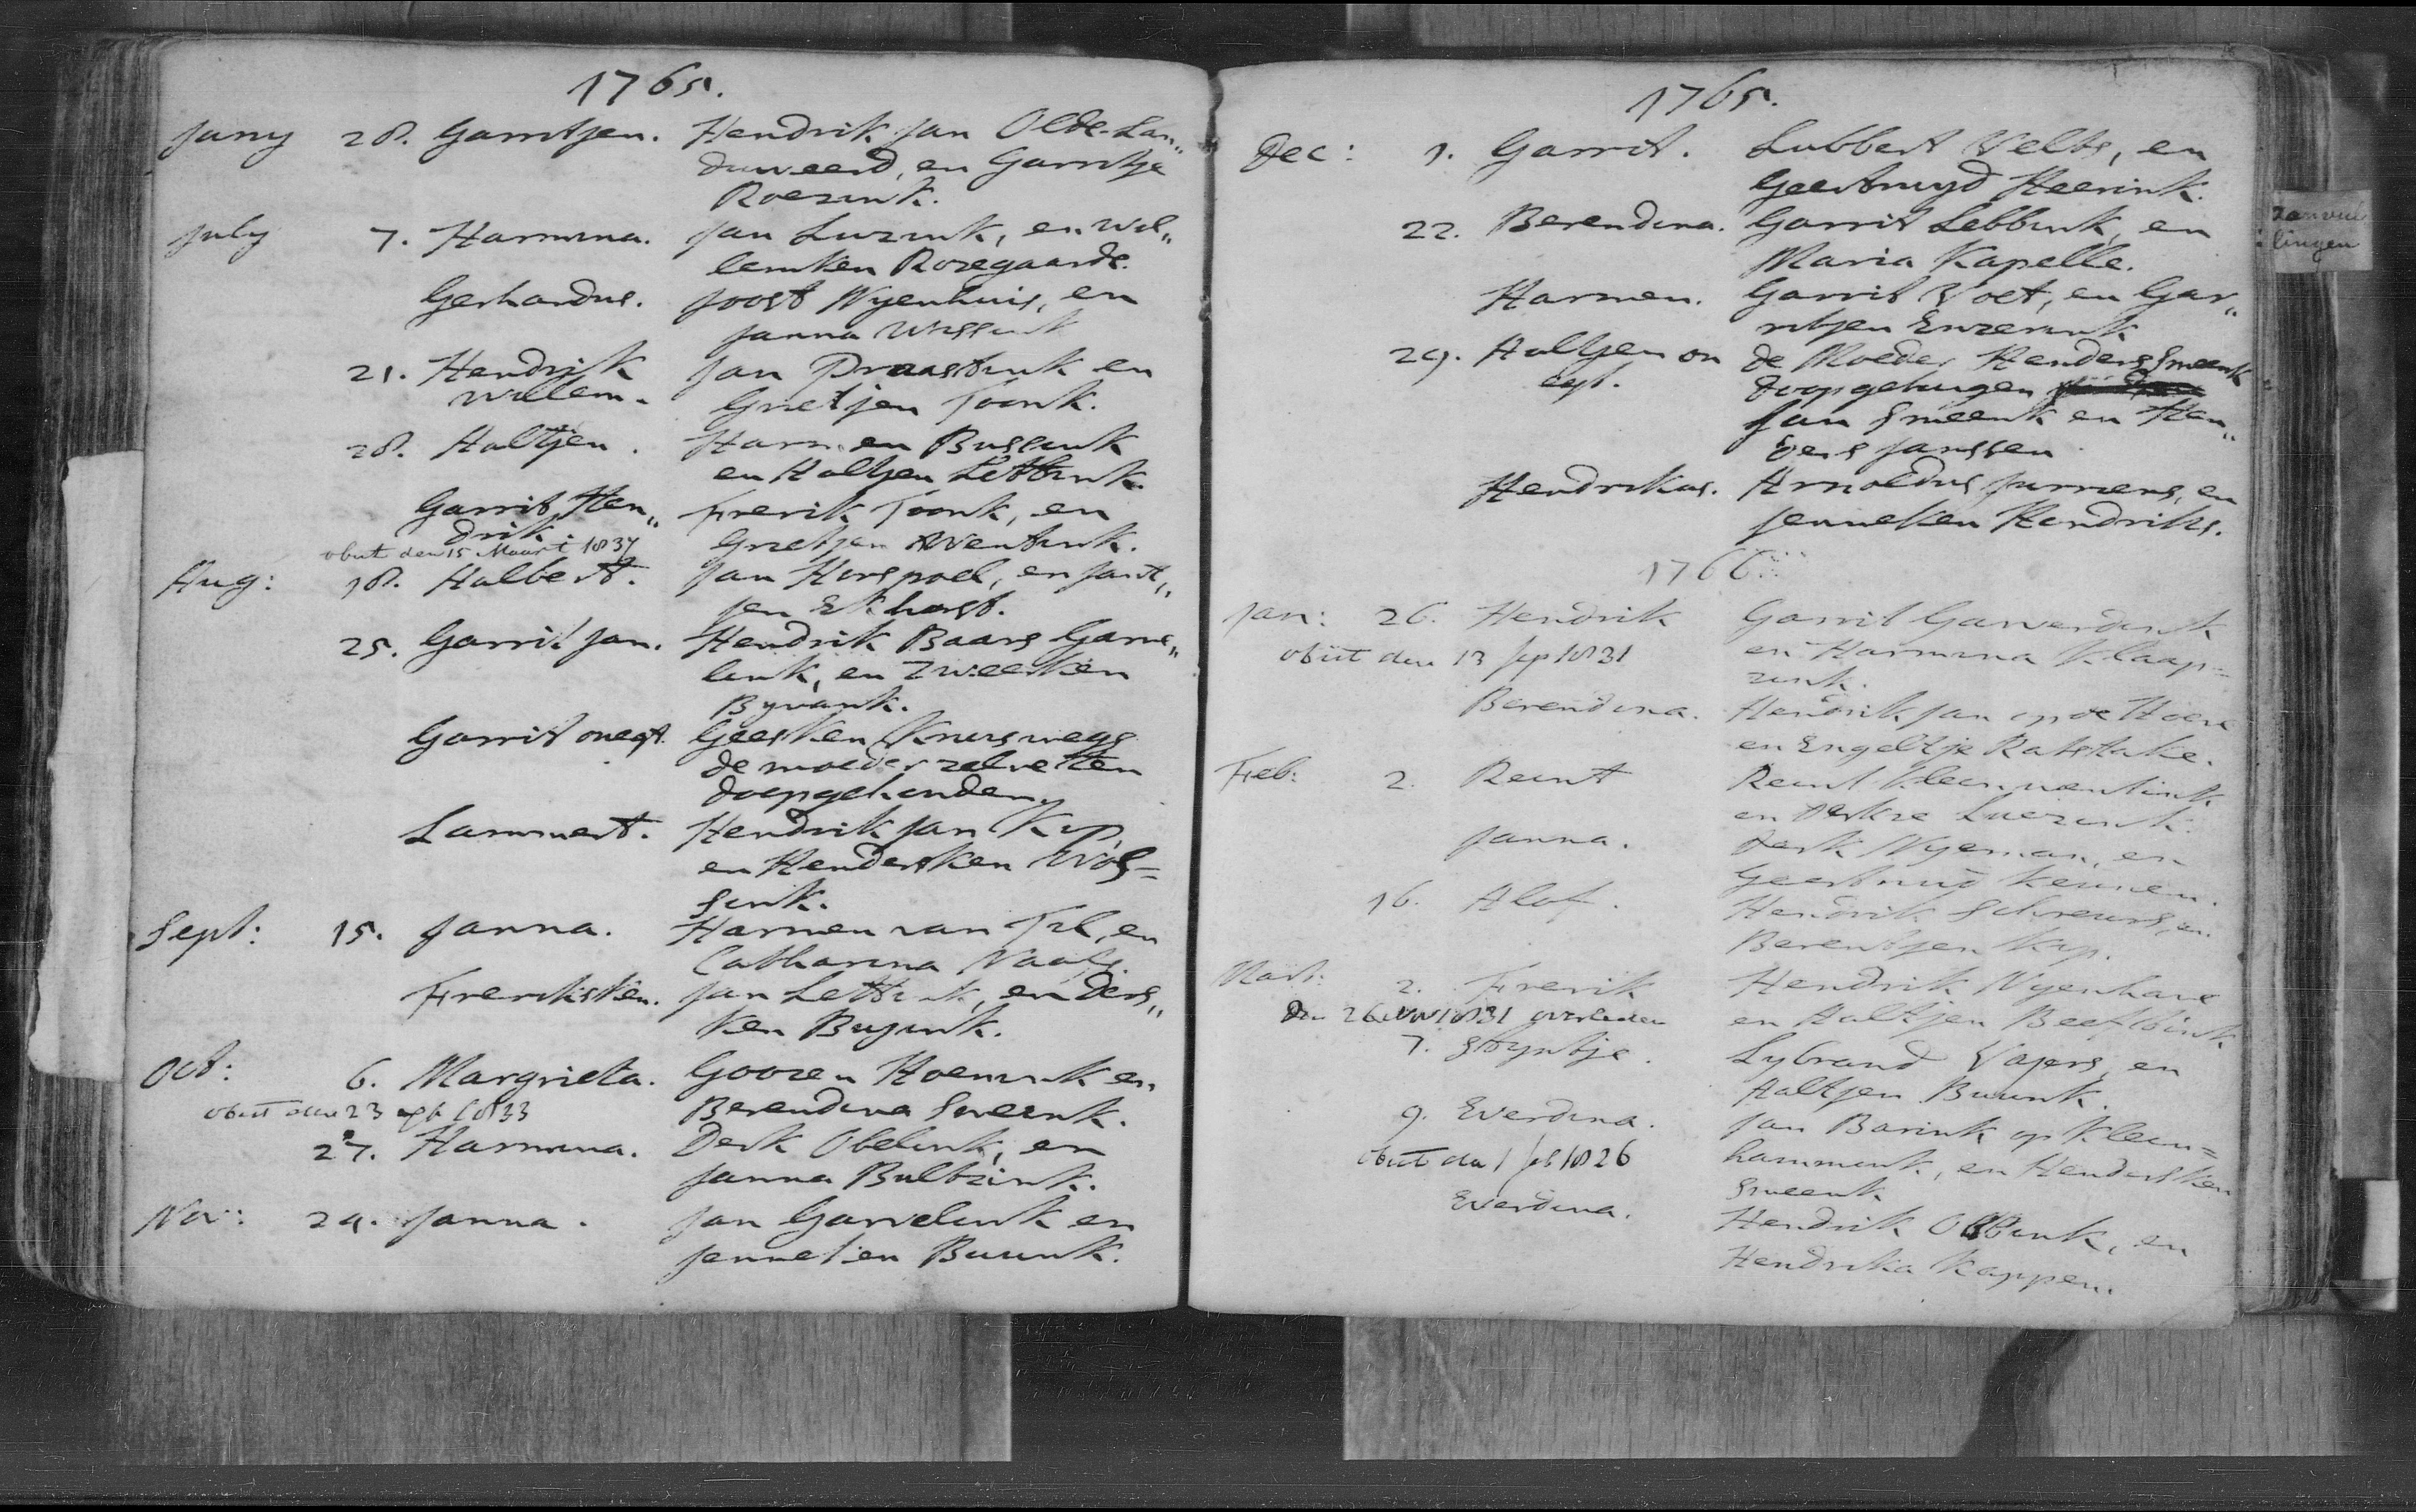 1765.
Juny 28. Garritjen. Hendrik Jan Olde-Lan„
duweerd, en Garritje
Roezink.
July 7. Harmina. Jan Luizink, en Wil„
lemken Rozegaarde.
Gerhardus. Joost Nyenhuis, en
Janna Wissink
21. Hendrik Jan Praastink en
Willem. Grietjen Toonk.
28. Aaltjen. Harmen Bussink
en Aaltjen Lettink.
Garrit Hen„ Frerik Toonk, en
drik. Grietjen Wentink.
obiit den 15 Maart 1837
Aug: 18. Aalbert. Jan Horspoel, en Jant„
jen Ekhorst.
25. Garrit Jan. Hendrik Baars Garve„
link, en Zweerken
Byvank.
Garrit onegt. Geesken Kruiswegs
de moeder zelve ten
doop gehouden.
Lammert. Hendrik Jan Kip
en Hendersken Wos=
sink.
Sept: 15. Janna. Harmen van Til, en
Catharina Naals.
Freriksken. Jan Lettink, en Ders„
ken Buzink.
Oct: 6. Margrieta. Goozen Hoenink en
Berendina Smeenk.
obiit den 23 1833
27. Harmina. Derk Obelink, en
Janna Bultzink.
Nov: 24. Janna. Jan Garvelink en
Jenneken Buunk.
1765.
Dec: 1. Garrit. Lubbert Velts, en
Geertruyd Heerink.
22. Berendina. Garrit Lebbink, en
Maria Kapelle.
Harmen. Garrit Voet, en Gar„
ritjen Enzerink
29. Aaltjen on de Moeder Henders Smeenk
egt. doopgetuigen
Jan Smeenk en Hen„
ders Janssen
Hendrikus. Arnoldus Jurriens, en
Jenneken Hendriks.
1766.
Jan: 26. Hendrik Garrit Garverdink
obiit den 13 Sep 1831 en Harmina Klaap=
zink.
Berendina. Hendrik Jan op de Hoeve
en Engeltje Ratstake.
Feb: 2. Reint Reint Klein wentink
en Derkse Luezink.
Janna. Derk Nyeman, en
Geertruid
16. Alof. Hendrik Schreurs, en
Berentjen Kip.
Mart: 2. Frerik Hendrik Nyenhuis
den 26 Nov 1831 overleden en Aaltjen Beeftink
7. Styntje. Sybrand Vapers, en
Aaltjen Buunk.
9. Everdina. Jan Barink op Klein=
obiit den 1 feb 1826 hammink, en Hendersken
Smeenk
Everdina. Hendrik Obbink, en
Hendrika Kappen.
zanvul
lingen